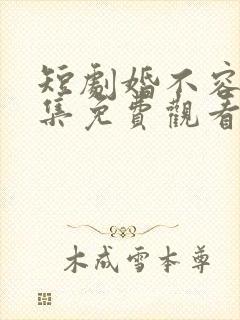 短劇婚不容
集免費觀看
木成雪本尊